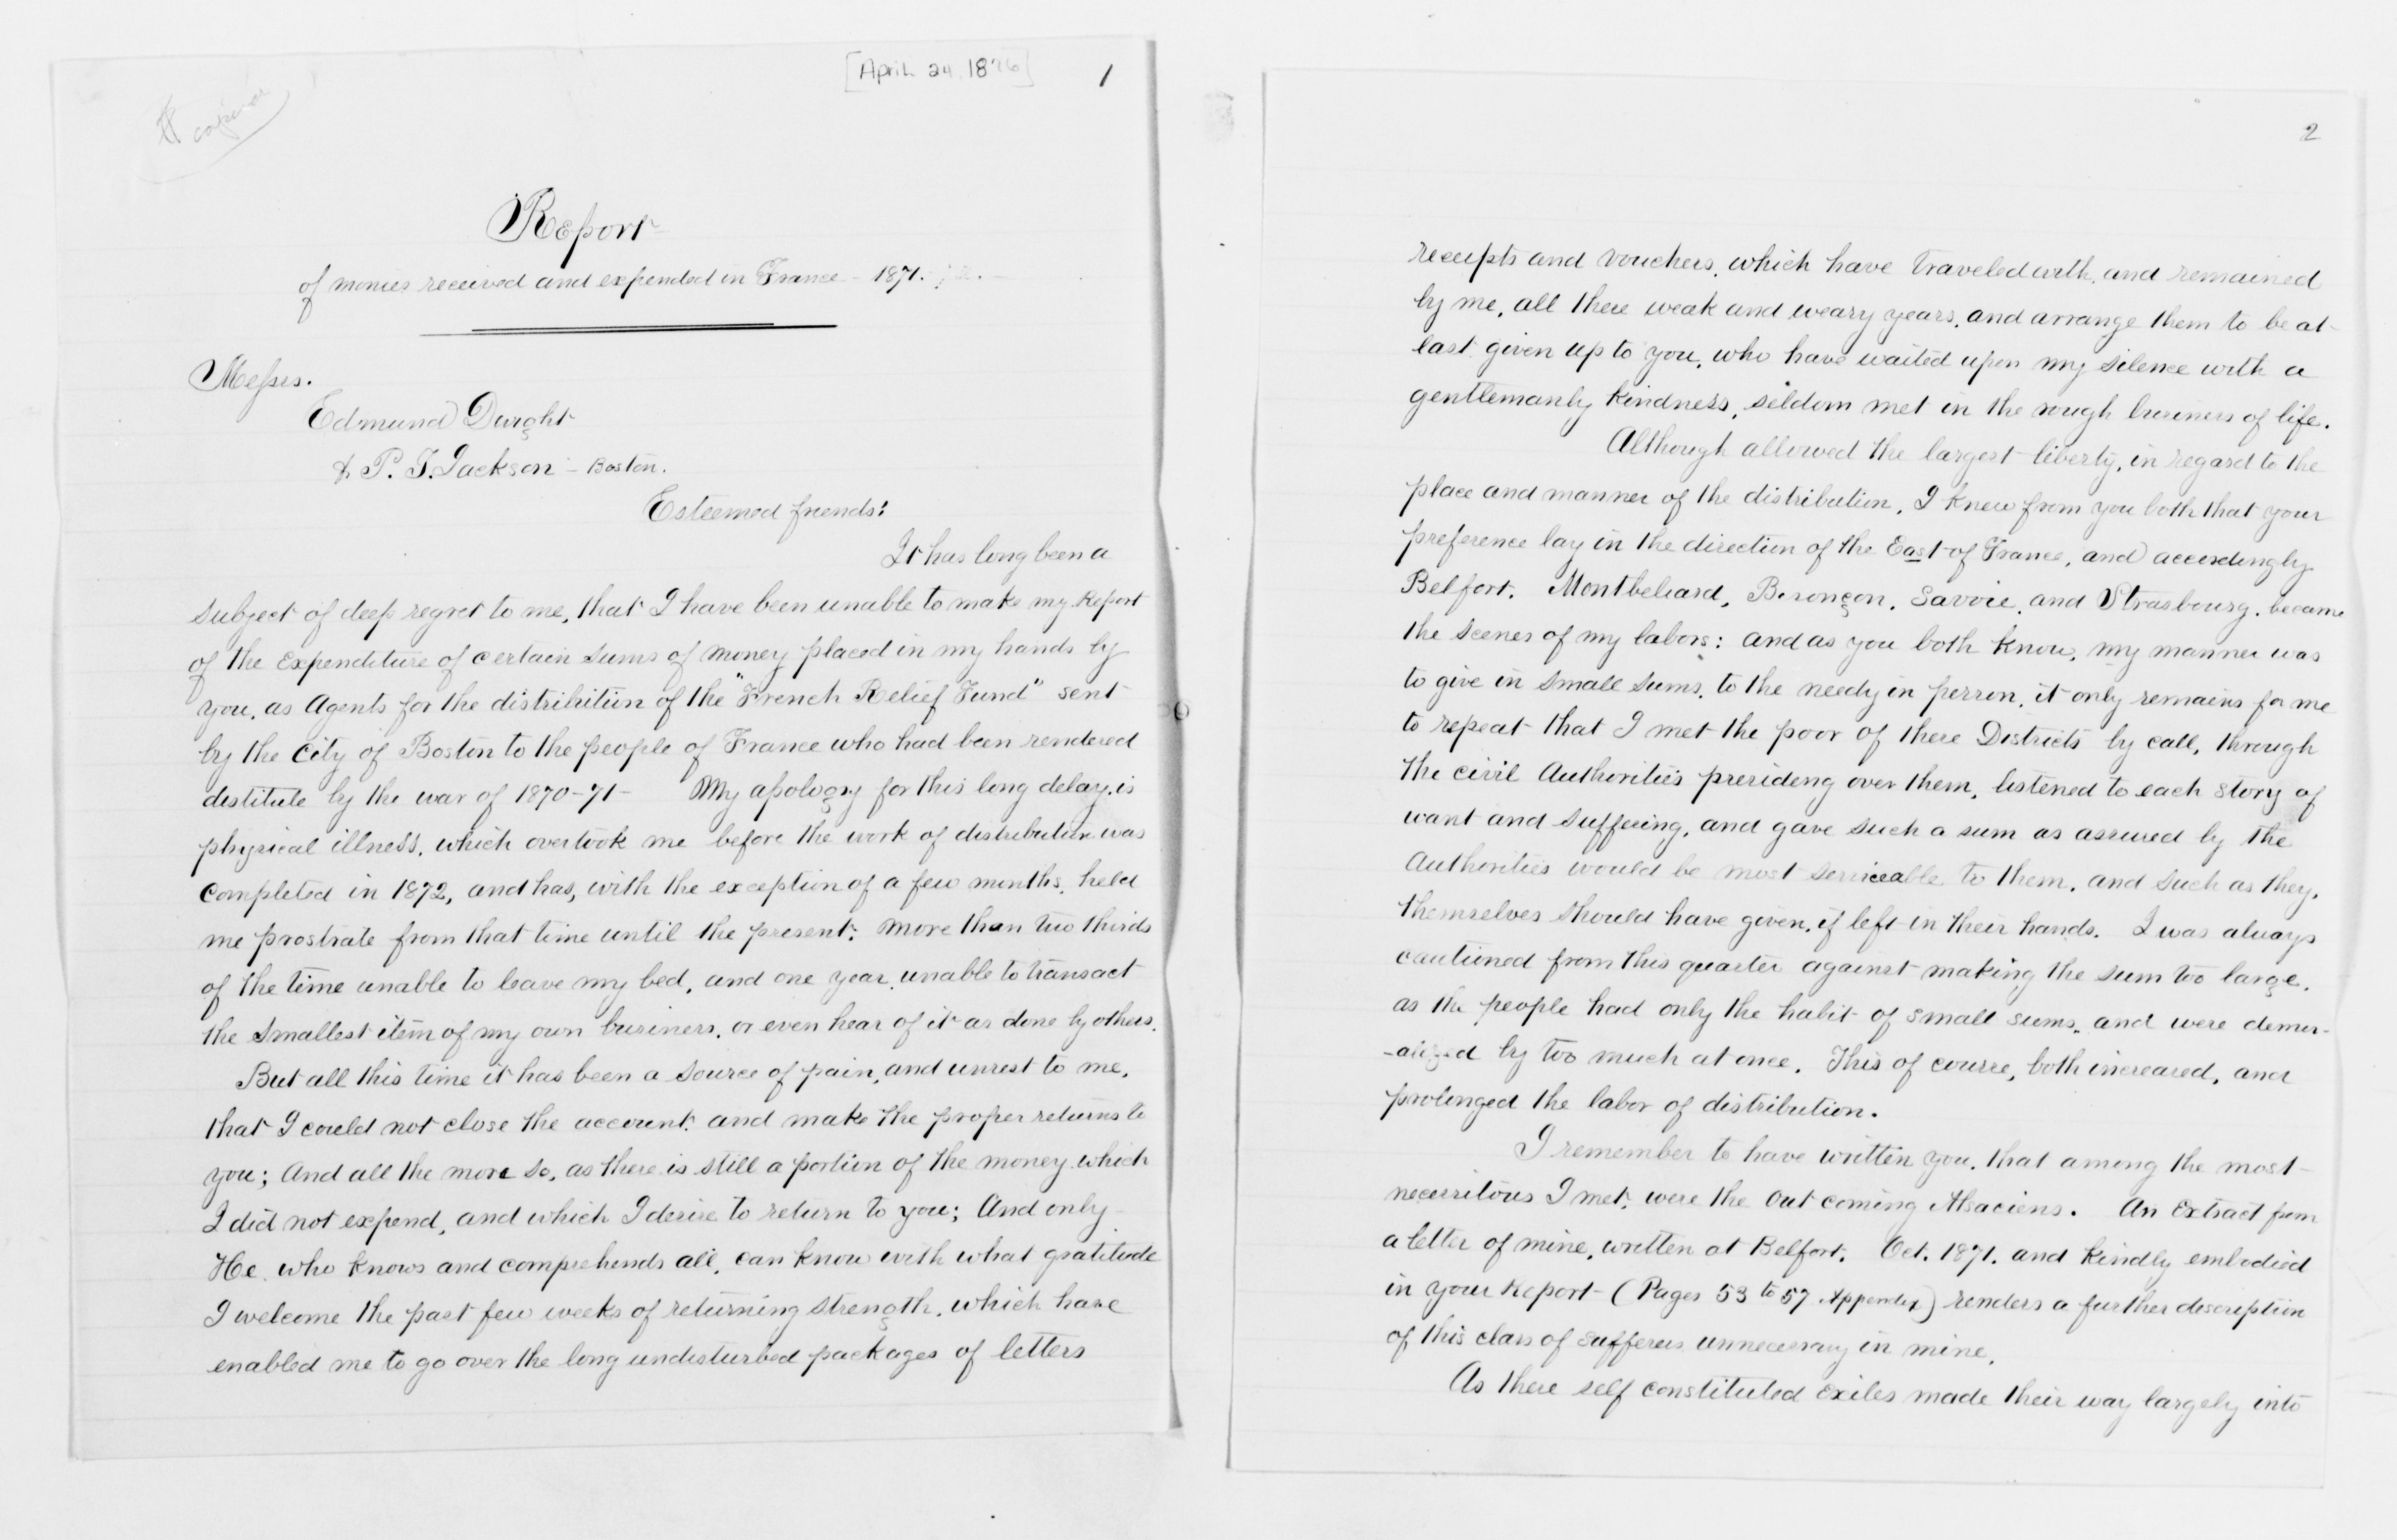 [April 24, 1876]
1
Report
of monies received and expended in France - 1871.
Messrs.
Edmund Dwight
& P. T. Jackson - Boston.
Esteemed friends:
It has long been a
subject of deep regret to me, that I have been unable to make my Report
of the Expenditure of certain sums of money placed in my hands by
you, as Agents for the distribution of the "French Relief Fund" sent
by the City of Boston to the people of France who had been rendered
destitute by the war of 1870-71- My apology for this long delay, is
physical illness, which overtook me before the work of distribution was
completed in 1872, and has, with the exception of a few months, held
me prostrate from that time until the present: more than two thirds
of the time unable to leave my bed, and one year, unable to transact
the smallest item of my own business, or even hear of it as done by others.
But all this time it has been a source of pain, and unrest to me,
that I could not close the account, and make the proper returns to
you; And all the more so, as there is still a portion of the money which
I did not expend, and which I desire to return to you; And only
He, who knows and comprehends all, can know with what gratitude
I welcome the past few weeks of returning strength, which have
enabled me to go over the long undisturbed packages of letters
2
receipts and vouchers, which have traveled with, and remained
by me, all these weak and weary years, and arrange them to be at
last given up to you, who have waited upon my silence with a
gentlemanly kindness, seldom met in the rough business of life.
Although allowed the largest liberty, in regard to the
place and manner of the distribution, I knew from you both that your
preference lay in the direction of the East of France, and accordingly
Belfort, Montbeliard, Besonçon, Savoie, and Strasbourg, became
the scenes of my labors: and as you both know, my manner was
to give in small sums, to the needy in person, it only remains for me
to repeat that I met the poor of these Districts by call, through
the civil Authorities presideng over them, listened to each story of
want and suffering, and gave such a sum as assured by the
Authorities would be most serviceable to them, and such as they,
themselves should have given, if left in their hands. I was always
cautioned from this quarter against making the sum too large,
as the people had only the habit of small sums, and were demor-
-alized by too much at once. This of course, both increased, and
prolonged the labor of distribution.
I remember to have written you, that among the most
necessitous I met, were the out coming Alsaciens. An Extract from
a letter of mine, written at Belfort, Oct. 1871. and kindly embodied
in your Report - (Pages 53 to 57 Appendix) renders a further discription
of this class of sufferers unnecessary in mine.
As these self constituted exiles made their way largely into